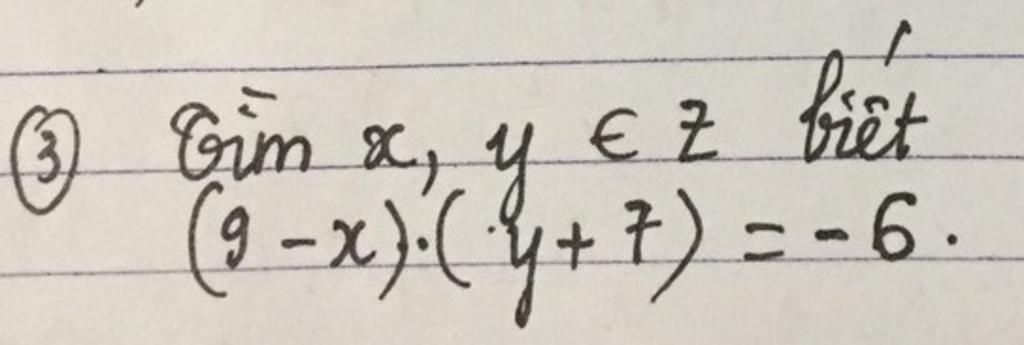 ③ Tìm x, y ∈ Z biết
(9 - x).(y + 7) = - 6.